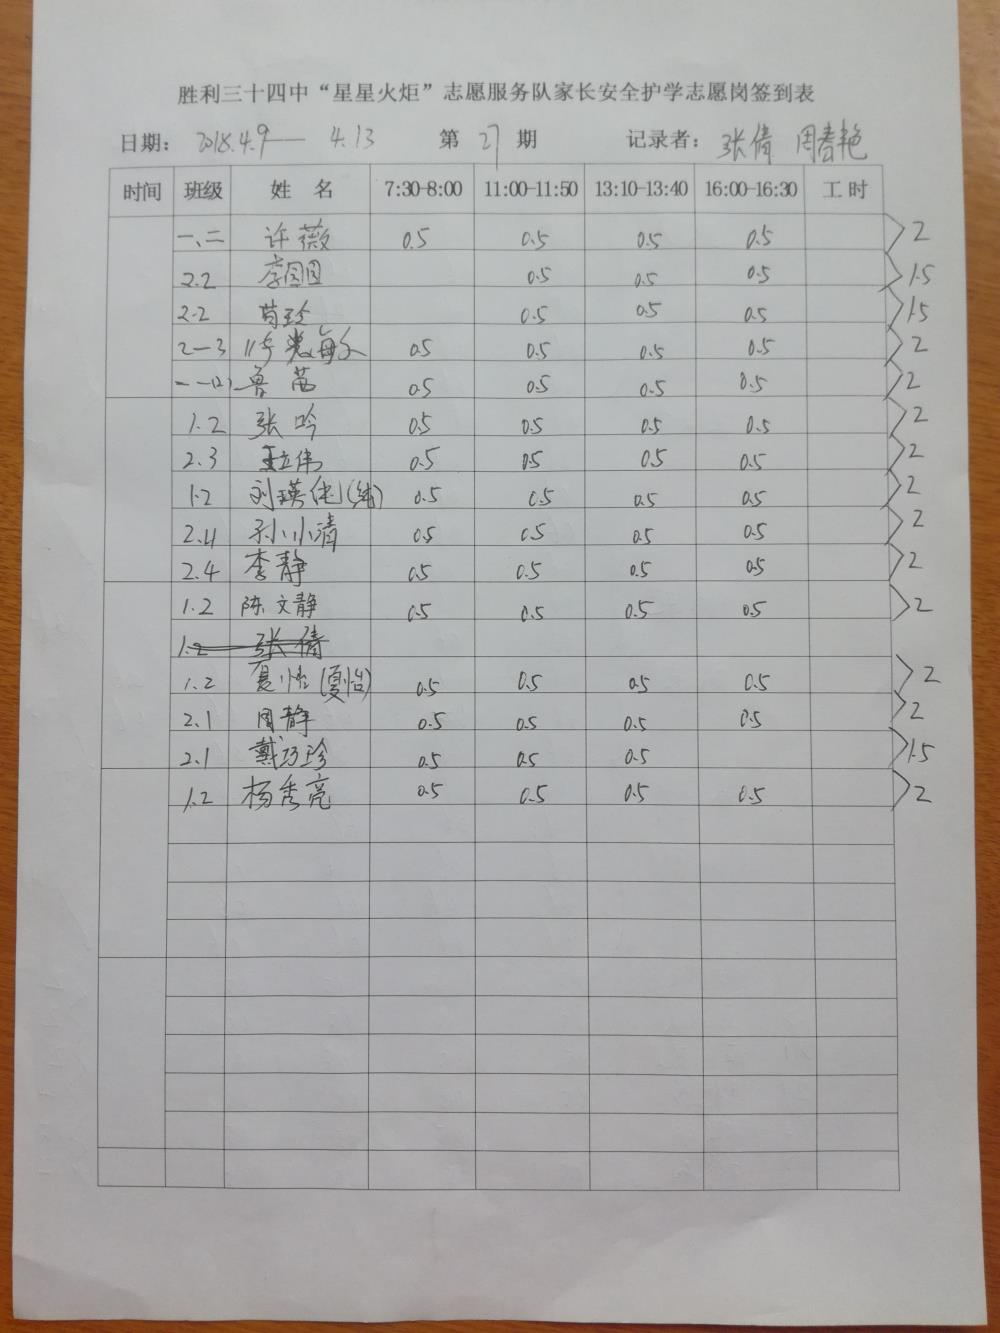 胜利三十四中“星星火炬”志愿服务队家长安全护学志愿岗签到表
日期： 2018.4.9—— 4.13 第 27 期 记录者： 张倩 周春艳
时间 班级 姓 名 7:30-8:00 11:00-11:50 13:10-13:40 16:00-16:30 工 时
一、二 许薇 0.5 0.5 0.5 0.5 2
2.2 李圆圆 0.5 0.5 0.5 1.5
2.2 苟玲 0.5 0.5 0.5 1.5
2—3 0.5 0.5 0.5 0.5 2
一一(2) 鲁茜 0.5 0.5 0.5 0.5 2
1.2 张吟 0.5 0.5 0.5 0.5 2
2.3 王立伟 0.5 0.5 0.5 0.5 2
1.2 刘瑛纯(纯) 0.5 0.5 0.5 0.5 2
2.4 孙小清 0.5 0.5 0.5 0.5 2
2.4 李静 0.5 0.5 0.5 0.5 2
1.2 陈文静 0.5 0.5 0.5 0.5 2
1.2 张倩
1.2 夏怡(夏怡) 0.5 0.5 0.5 0.5 2
2.1 周静 0.5 0.5 0.5 0.5 2
2.1 戴巧珍 0.5 0.5 0.5 1.5
1.2 杨秀亮 0.5 0.5 0.5 0.5 2